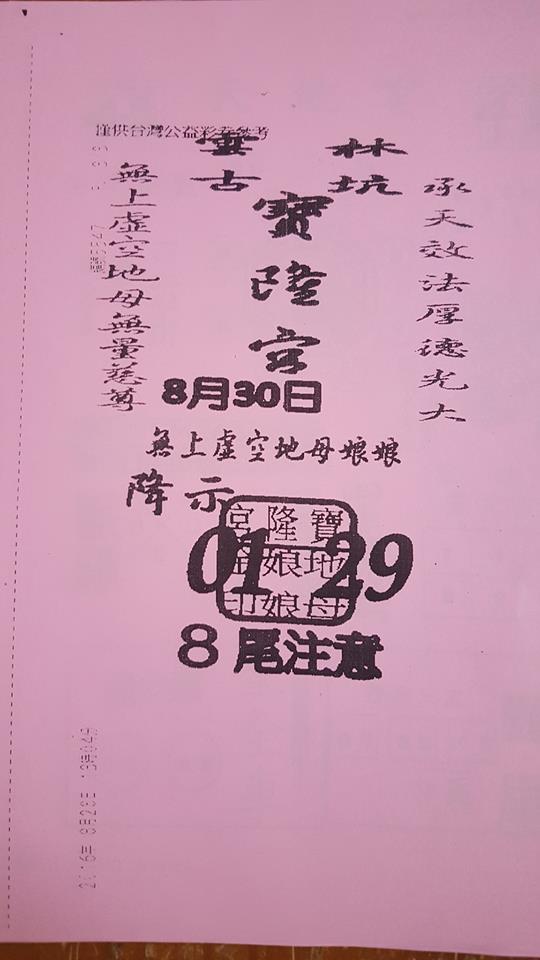 僅供台灣公益彩卷參考
雲林
古坑
寶隆宮
承天效法厚德光大
無上虛空地母無量慈尊
8月30日
無上虛空地母娘娘
降示
寶隆宮
地母娘娘
01 29
8尾注意